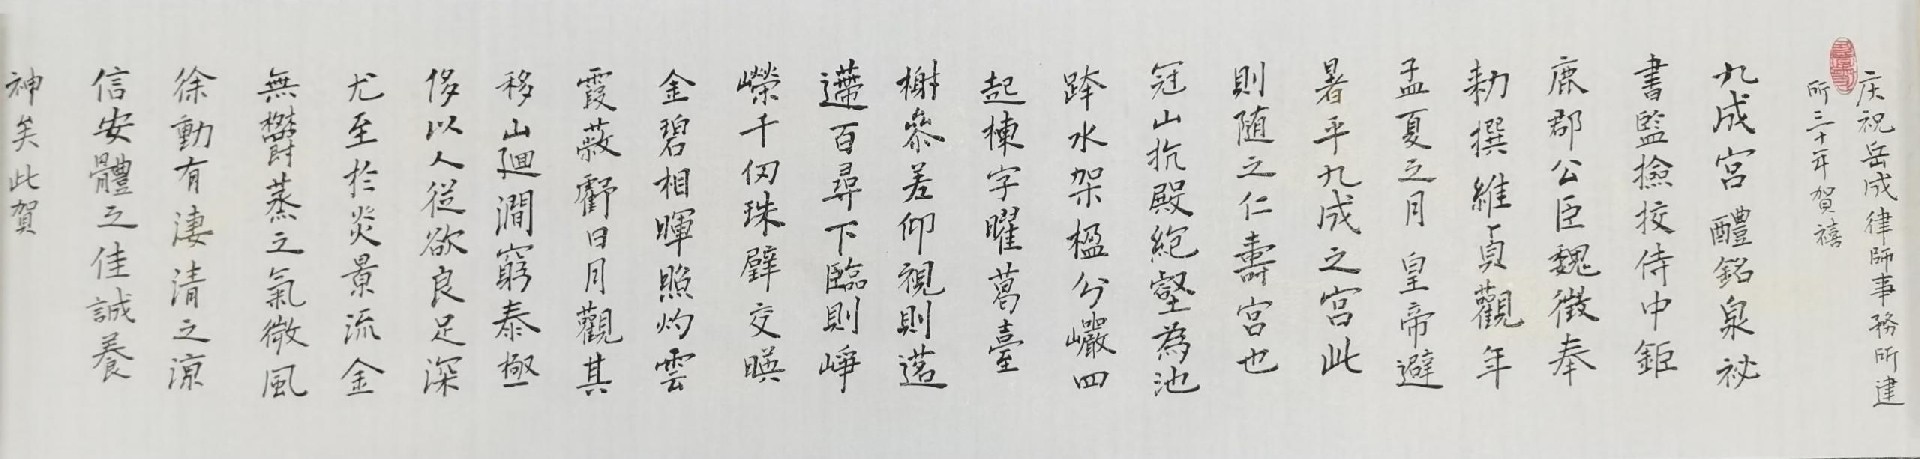 庆祝岳成律师事务所建
所三十年贺禧
九成宫醴銘泉祕
書監撿挍侍中鉅
鹿郡公臣魏徵奉
勑撰維貞觀年
孟夏之月皇帝避
暑乎九成之宫此
則随之仁壽宫也
冠山抗殿絶壑為池
跨水架楹分巗四
起棟宇曜葛臺
榭叅差仰視則迢
遰百尋下臨則崢
嶸千仞珠壁交暎
金碧相暉照灼雲
霞蔽虧日月觀其
移山廻澗窮泰極
侈以人従欲良足深
尤至於炎景流金
無鬱蒸之氣微風
徐動有淒清之凉
信安體之佳誠養
神矣此賀